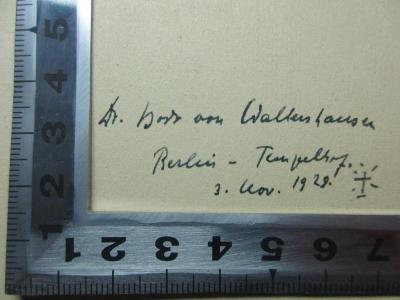 Dr. Bodo von Waltershausen
Berlin – Tempelhof.
3. Nov. 1928.
5
4
3
2
1
1 2 3 4 5 6 7